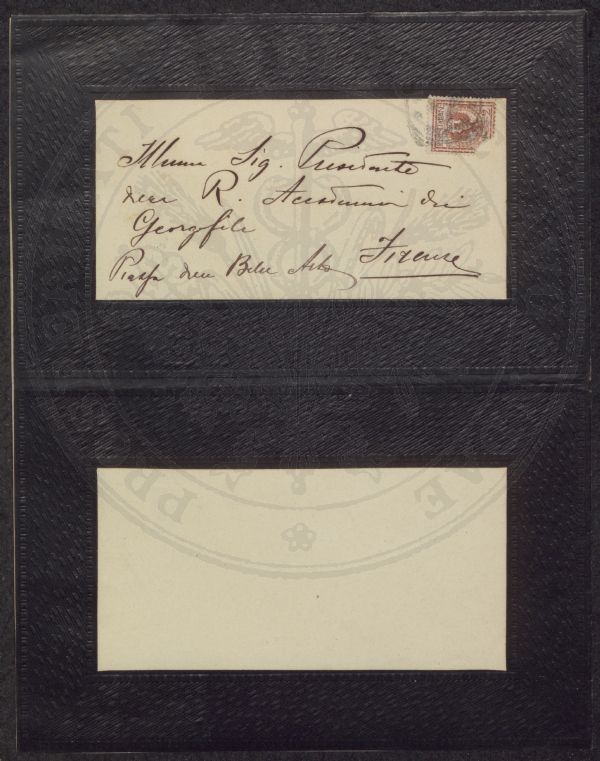 Illumo Sig. Presidente
della R. Accademia dei
Georgofili
Piazza delle Belle Arti Firenze